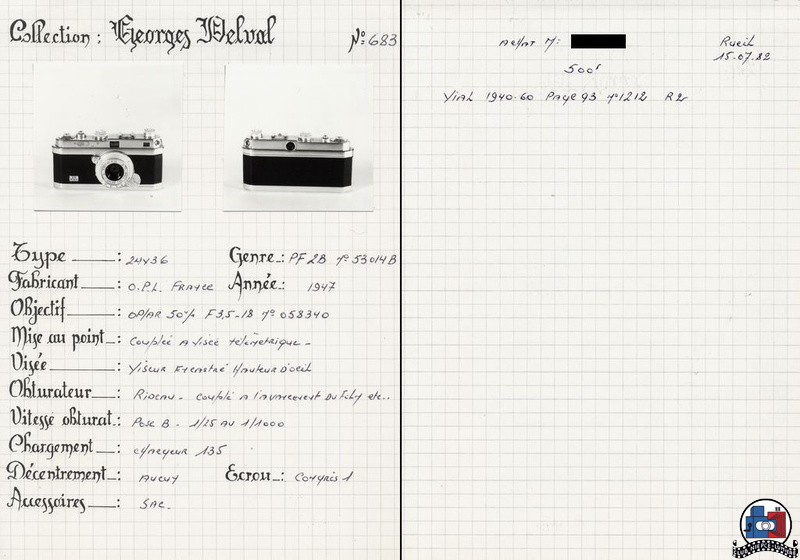 Collection : Georges Delval N° 683
Type : 24x36 Genre : PF 2B n° 53014B
Fabricant : O.P.L. France Année : 1947
Objectif : OPLAR 50% F 3,5-18 n° 058340
Mise au point : Couplée A visée télémétrique -
Visée : Viseur Hauteur D'oeil
Obturateur : Rideau - Couplé A l'avancement Du film etc..
Vitesse obturat. : Pose B - 1/25 AU 1/1000
Chargement : chargeur 135
Décentrement : AUCUN Ecrou : Congrès 1
Accessoires : SAC.
Achat M: Rueil
15.07.82
500F
Vial 1940-60 Page 93 n°1212 R2